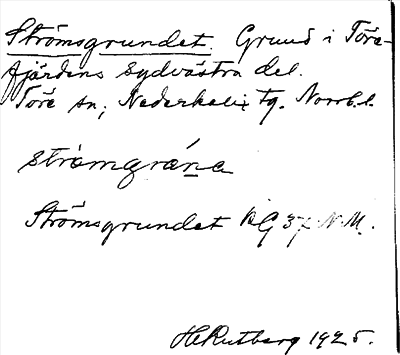 Strömsgrundet. Grund i Töre-
fjärdens sydvästra del.
Töre sn, Nederkalix tg. Norrb. l.
strömgrǻna
Strömsgrundet KG 37 N.M.
H Rutberg 1925.